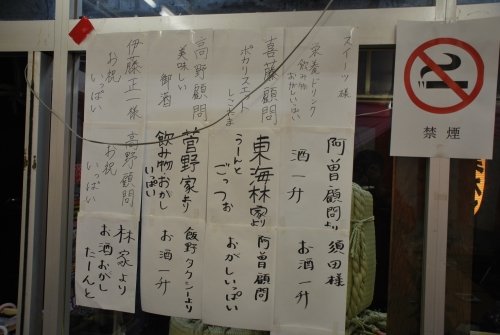 スイーツ様
栄養ドリンク
飲み物
お菓子いっぱい
喜藤顧問
ポカリスエット
しこたま
高野顧問
美味しい
御酒
伊藤正一様
お祝
いっぱい
阿曽顧問より
酒一升
東海林家より
うーんと
ごっつお
菅野家より
飲み物おかし
いっぱい
高野顧問
お祝
いっぱい
須田様
お酒一升
阿曽顧問
おがしいっぱい
飯野タクシーより
お酒一升
林家より
お酒おかし
たーんと
禁煙